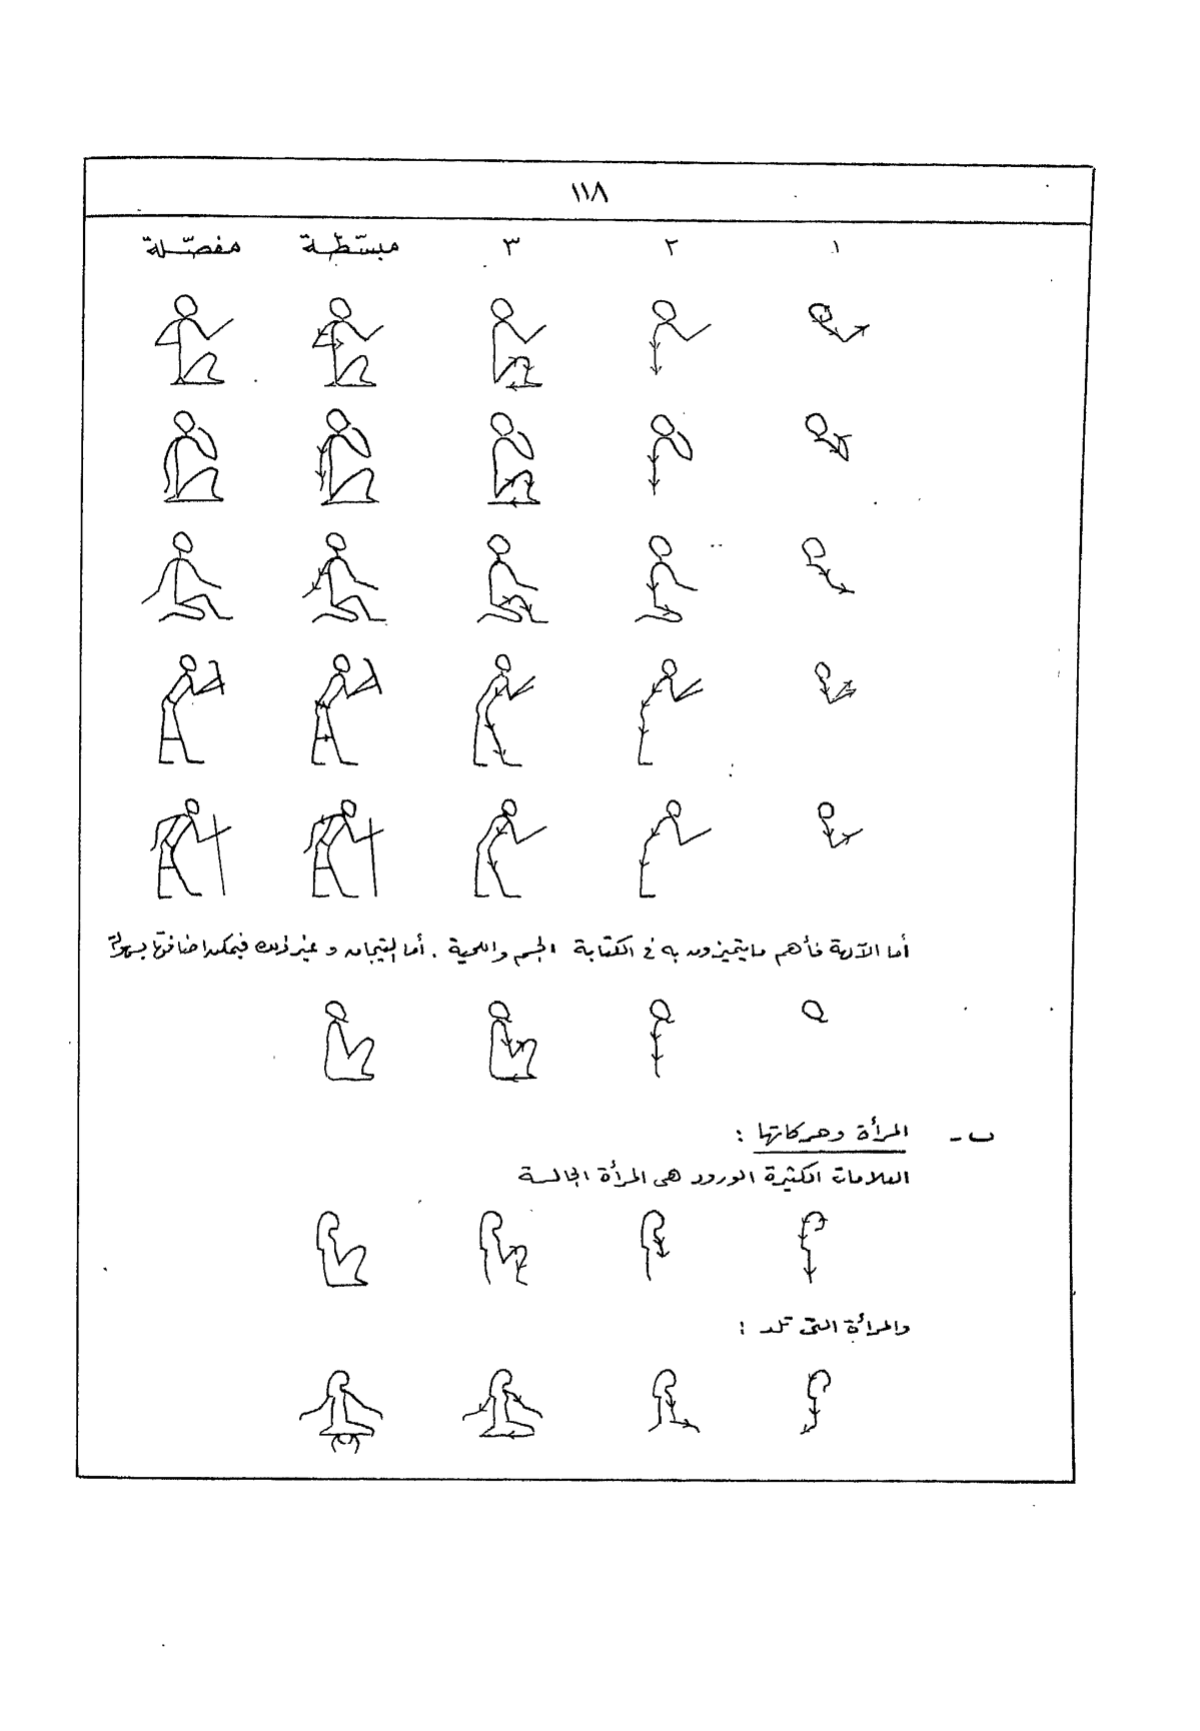 ١١٨
١ ٢ ٣ مبسّطة مفصّلة
أما الآلهة فأهم ما يتميزون به فى الكتابة الجسم واللحية . أما التيجان و غير ذلك فيمكن اضافتها بسهولة
ب - المرأة وحركاتها :
العلامات الكثيرة الورود هى المرأة الجالسة
والمرأة التى تلد :